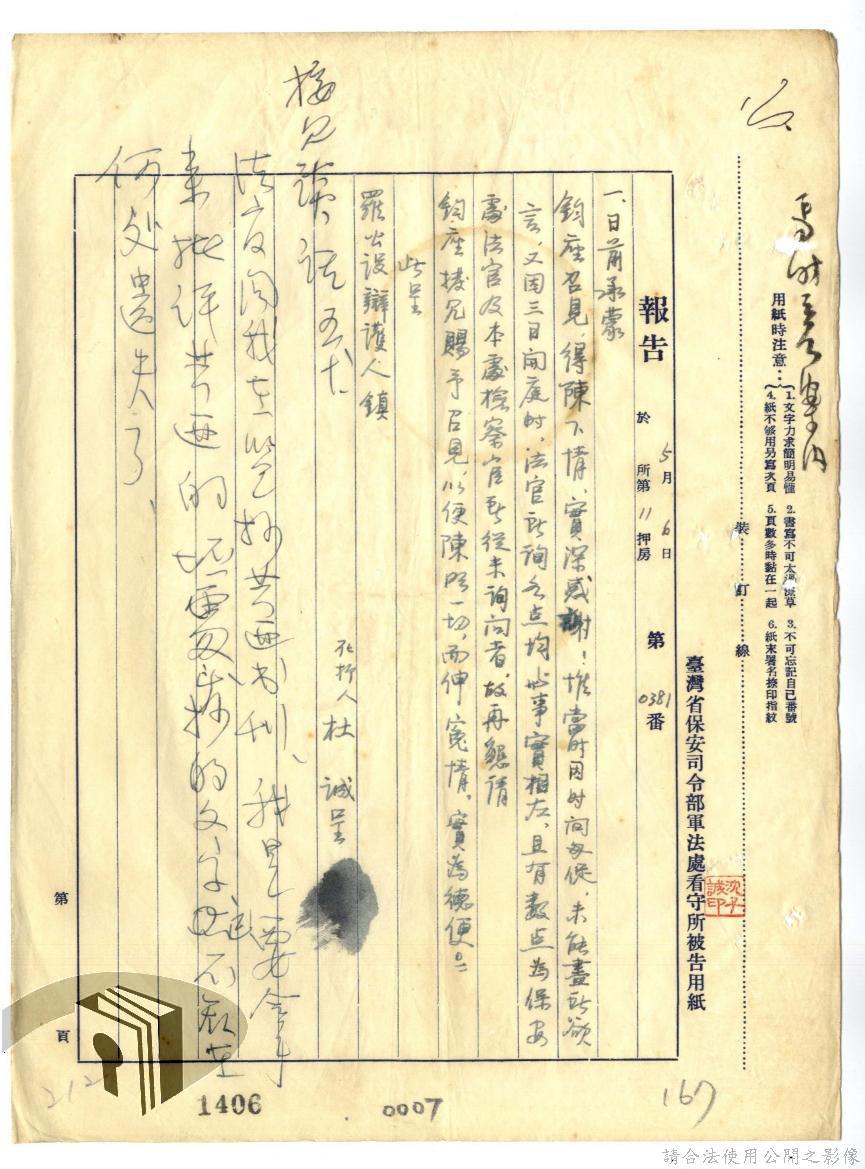 用紙時注意：
1. 文字力求簡明易懂　2. 書寫不可太潦草　3. 不可忘記自己番號
4. 紙不够用另寫次頁　5. 頁數多時黏在一起　6. 紙末署名捺印指紋
裝訂線
臺灣省保安司令部軍法處看守所被告用紙
報告　於　5月6日　所第11押房　第0381番
一、日前承蒙
鈞座召見，得陳下情，實深感謝！惟當時因時间匆促，未能盡所欲
言，又因三日開庭时，法官所詢各点均與事實相左，且有数点為保安
處法官及本處檢察官所從未詢问者，故再懇請
鈞座撥冗賜予召見，以便陳照一切，而伸寃情，實為德便。
此呈
羅公設辯護人鎮
在押人　杜誠呈
接見談話
法官問我在監抄共匪书刊，我是要拿
來批評共匪的
何处遺失了、
第　頁
1406
0007
167
212
請合法使用公開之影像